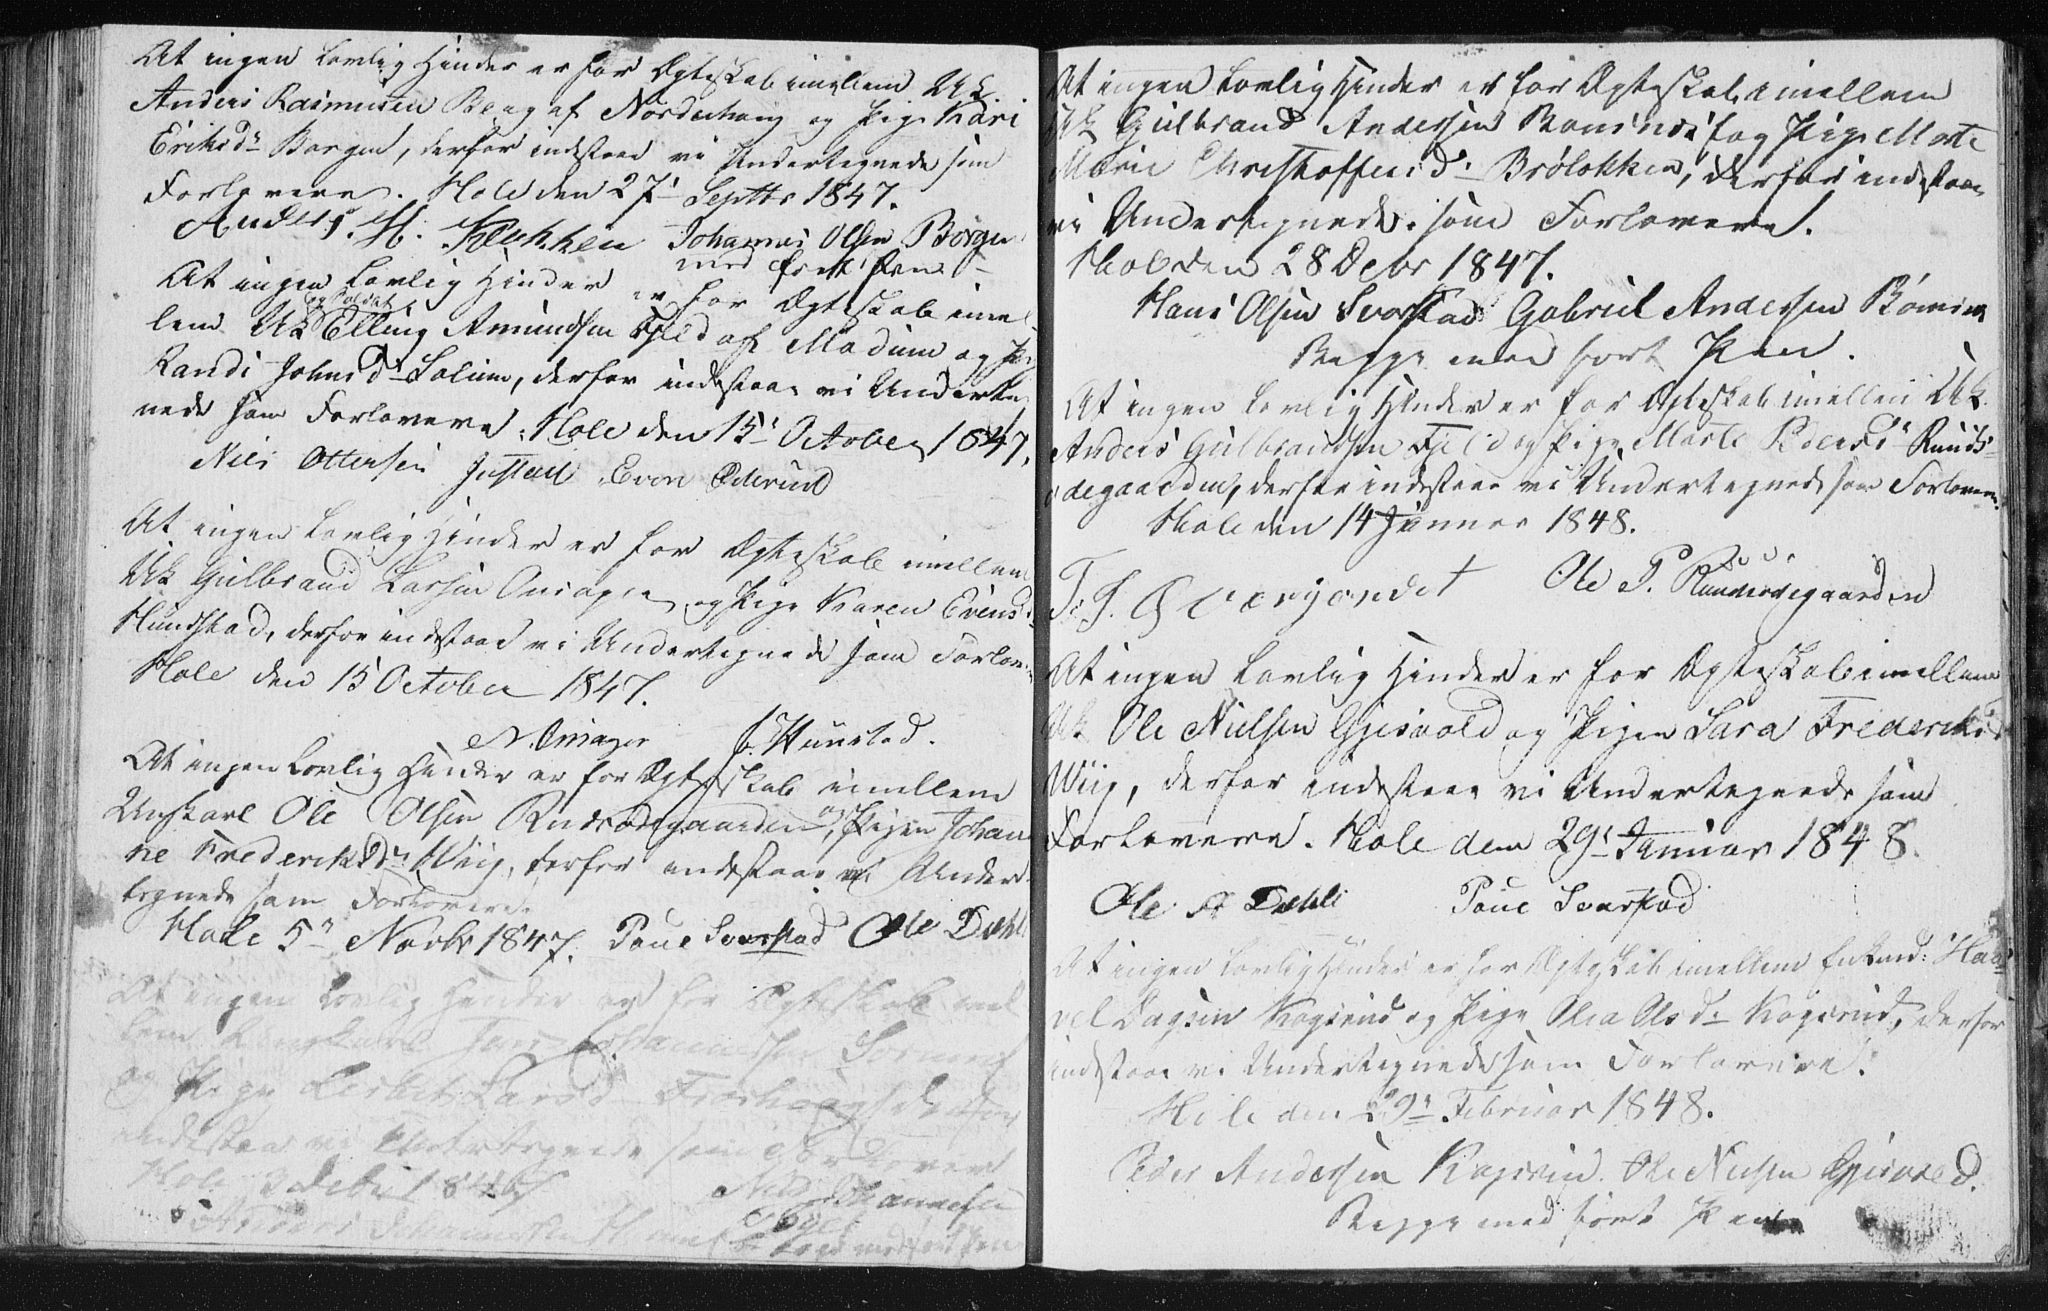 At ingen Lovlig Hinder er for Ægteskab imellem Uk.
Anders Rasmusen Berg af Norderhoug og Pige Kari
Eriksd: Borgen, derfor indestaae vi Undertegnede som
Forlovere. Hole den 27: Septbr 1847.
Anders. H. Klekken Johannes Olsen Borgen
med ført Pen
At ingen Lovlig Hinder er for Ægteskab imel-
og Soldat
lem Uk Elling Amundsen Fjeld af Modum og Pige
Randi Johnsd: Solum, derfor indestaae vi Underteg
nede som Forlovere. Hole den 15: October 1847.
Niels Ottersen Even Øderud
At ingen Lovlig Hinder er for Ægteskab imellem
Uk Gulbrand Larsen Onsager og Pige Karen Evensd:
Hundstad, derfor indestaae vi Undertegnede som Forlov-
Hole den 15 October 1847.
N. Onsager J. Hunstad.
At ingen Lovlig Hinder er for Ægteskab imellem
Ungkarl Ole Olsen Rudsødegaarden, og Pigen Johan
ne Frederiksd: Wiig, derfor indestaae vi Under-
tegnede som Forlovere.
Hole 5: Novbr 1847. Poue Svarstad Ole Dæhli
At ingen Lovlig Hinder er for Ægteskab imel
lem Ungkarl Johannessen
og Pige Lisbet Larsd: derfor
indestaa vi Undertegnede som Forlovere
Hole 3 Debr 1847 Niels Johannesen
Anders Johannesen
Begge med ført Pen
At ingen Lovlig Hinder er for Ægteskab imellem
Uk Gulbrand Andersen og Pige Marte
Marie Christhoffersd: Brølokken, derfor indestaae
vi Undertegnede som Forlovere.
Hole den 28 Debr 1847.
Hans Olsen Svarstad Gabriel Andersen
Begge med ført Pen.
At ingen Lovlig Hinder er for Ægteskab imellem Uk.
Anders Gulbrandsen Fjeld og Pige Marte Pedersd: Ruuds-
ødegaarden, derfor indestaae vi Undertegnede som Forlovere.
Hole den 14 Januar 1848.
Ole P. Ruudsødegaarden
At ingen Lovlig Hinder er for Ægteskab imellem
Uk Ole Nielsen Gjesvold og Pigen Sara Frederiksd
Wiig, derfor indestaae vi Undertegnede som
Forlovere. Hole den 29: Januar 1848.
Ole A Dæhli Poue Svarstad
At ingen Lovlig Hinder er for Ægteskab imellem Enkmd: Haa-
vel Dagsen Kogsrud og Pige Olea Olsd: Kogsrud, derfor
indestaae vi Undertegnede som Forlovere.
Hole den 29: Februar 1848.
Peder Andersen Kogsrud. Ole Nielsen Gjesvold.
Begge med ført Pen